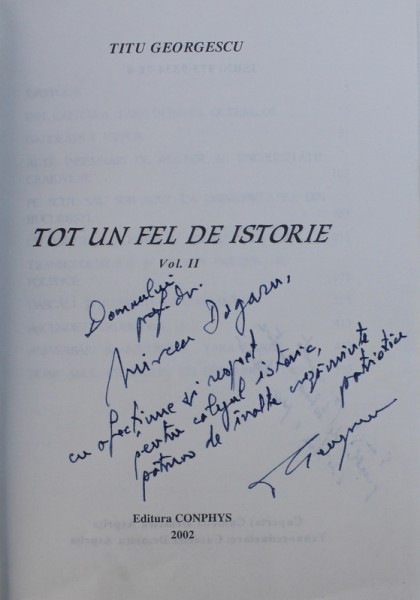 TITU GEORGESCU
TOT UN FEL DE ISTORIE
Vol. II
Domnului
prof. dr.
Mircea Dogaru,
cu afecțiune și respect
pentru colegul istoric,
pătruns de înalte năzuințe
patriotice
Editura CONPHYS
2002